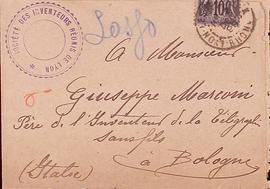 SOCIÉTÉ DES INVENTEURS RÉUNIS DE LYON
Sasso
10
A Monsieur
Giuseppe Marconi
Père de l'Inventeur de la Télégraph
sans fils
à Bologne
(Italie)